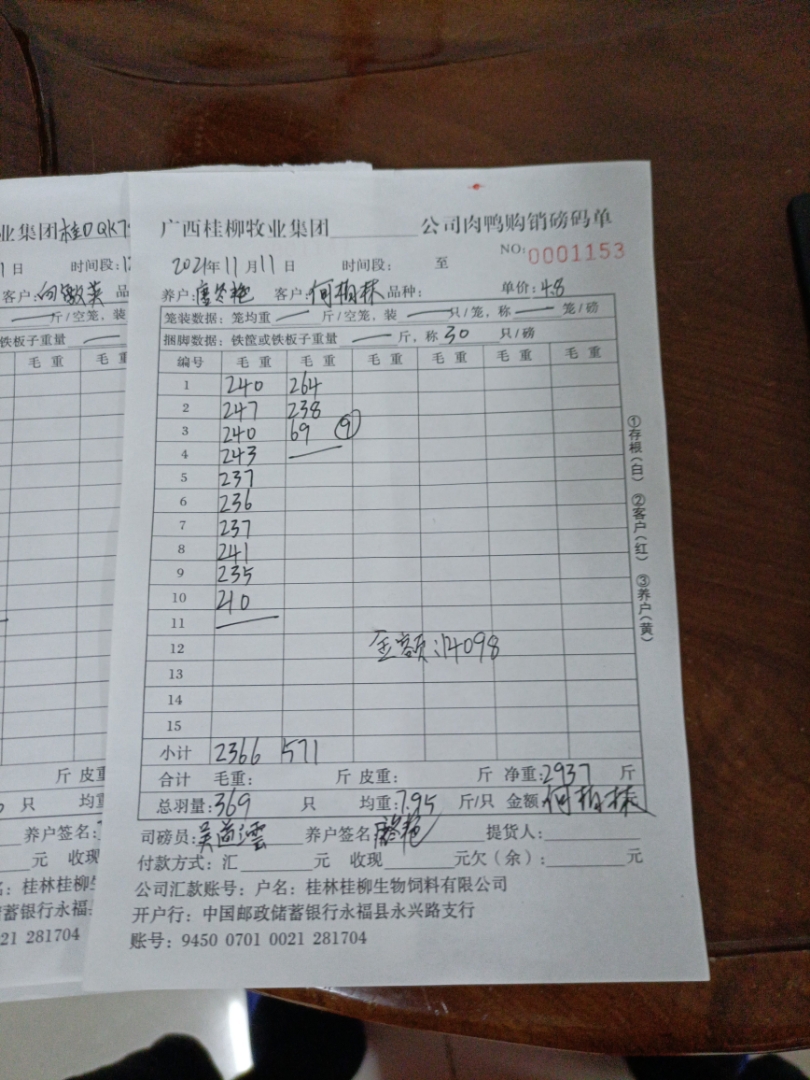 业集团桂DQK7
日 时间段:1
客户:向敏英 品
斤/空笼，装
铁板子重量 —
毛 重 毛 重
斤 皮重:
只 均重
养户签名:
元 收现
名: 桂林桂柳生
蓄银行永福
21 281704
广西桂柳牧业集团________公司肉鸭购销磅码单
NO:0001153
2021年11月11日 时间段: 至
养户: 客户:何柏林 品种: 单价:4.8
笼装数据: 笼均重 — 斤/空笼，装 — 只/笼，称 — 笼/磅
捆脚数据: 铁筐或铁板子重量 — 斤，称 30 只/磅
编号 毛 重 毛 重 毛 重 毛 重 毛 重 毛 重
1 240 264
2 247 238
3 240 69 ⑨
4 243 —
5 237
6 236
7 237
8 241
9 235
10 210
11 —
12 金额:14098
13
14
15
小计 2366 571
合计 毛重: 斤 皮重: 斤 净重:2937 斤
总羽量:369 只 均重:7.95 斤/只 金额:何柏林
司磅员: 养户签名: 提货人:
付款方式: 汇______元 收现______元欠（余）:______元
公司汇款账号: 户名: 桂林桂柳生物饲料有限公司
开户行: 中国邮政储蓄银行永福县永兴路支行
账号: 9450 0701 0021 281704
①存根(白) ②客户(红) ③养户(黄)